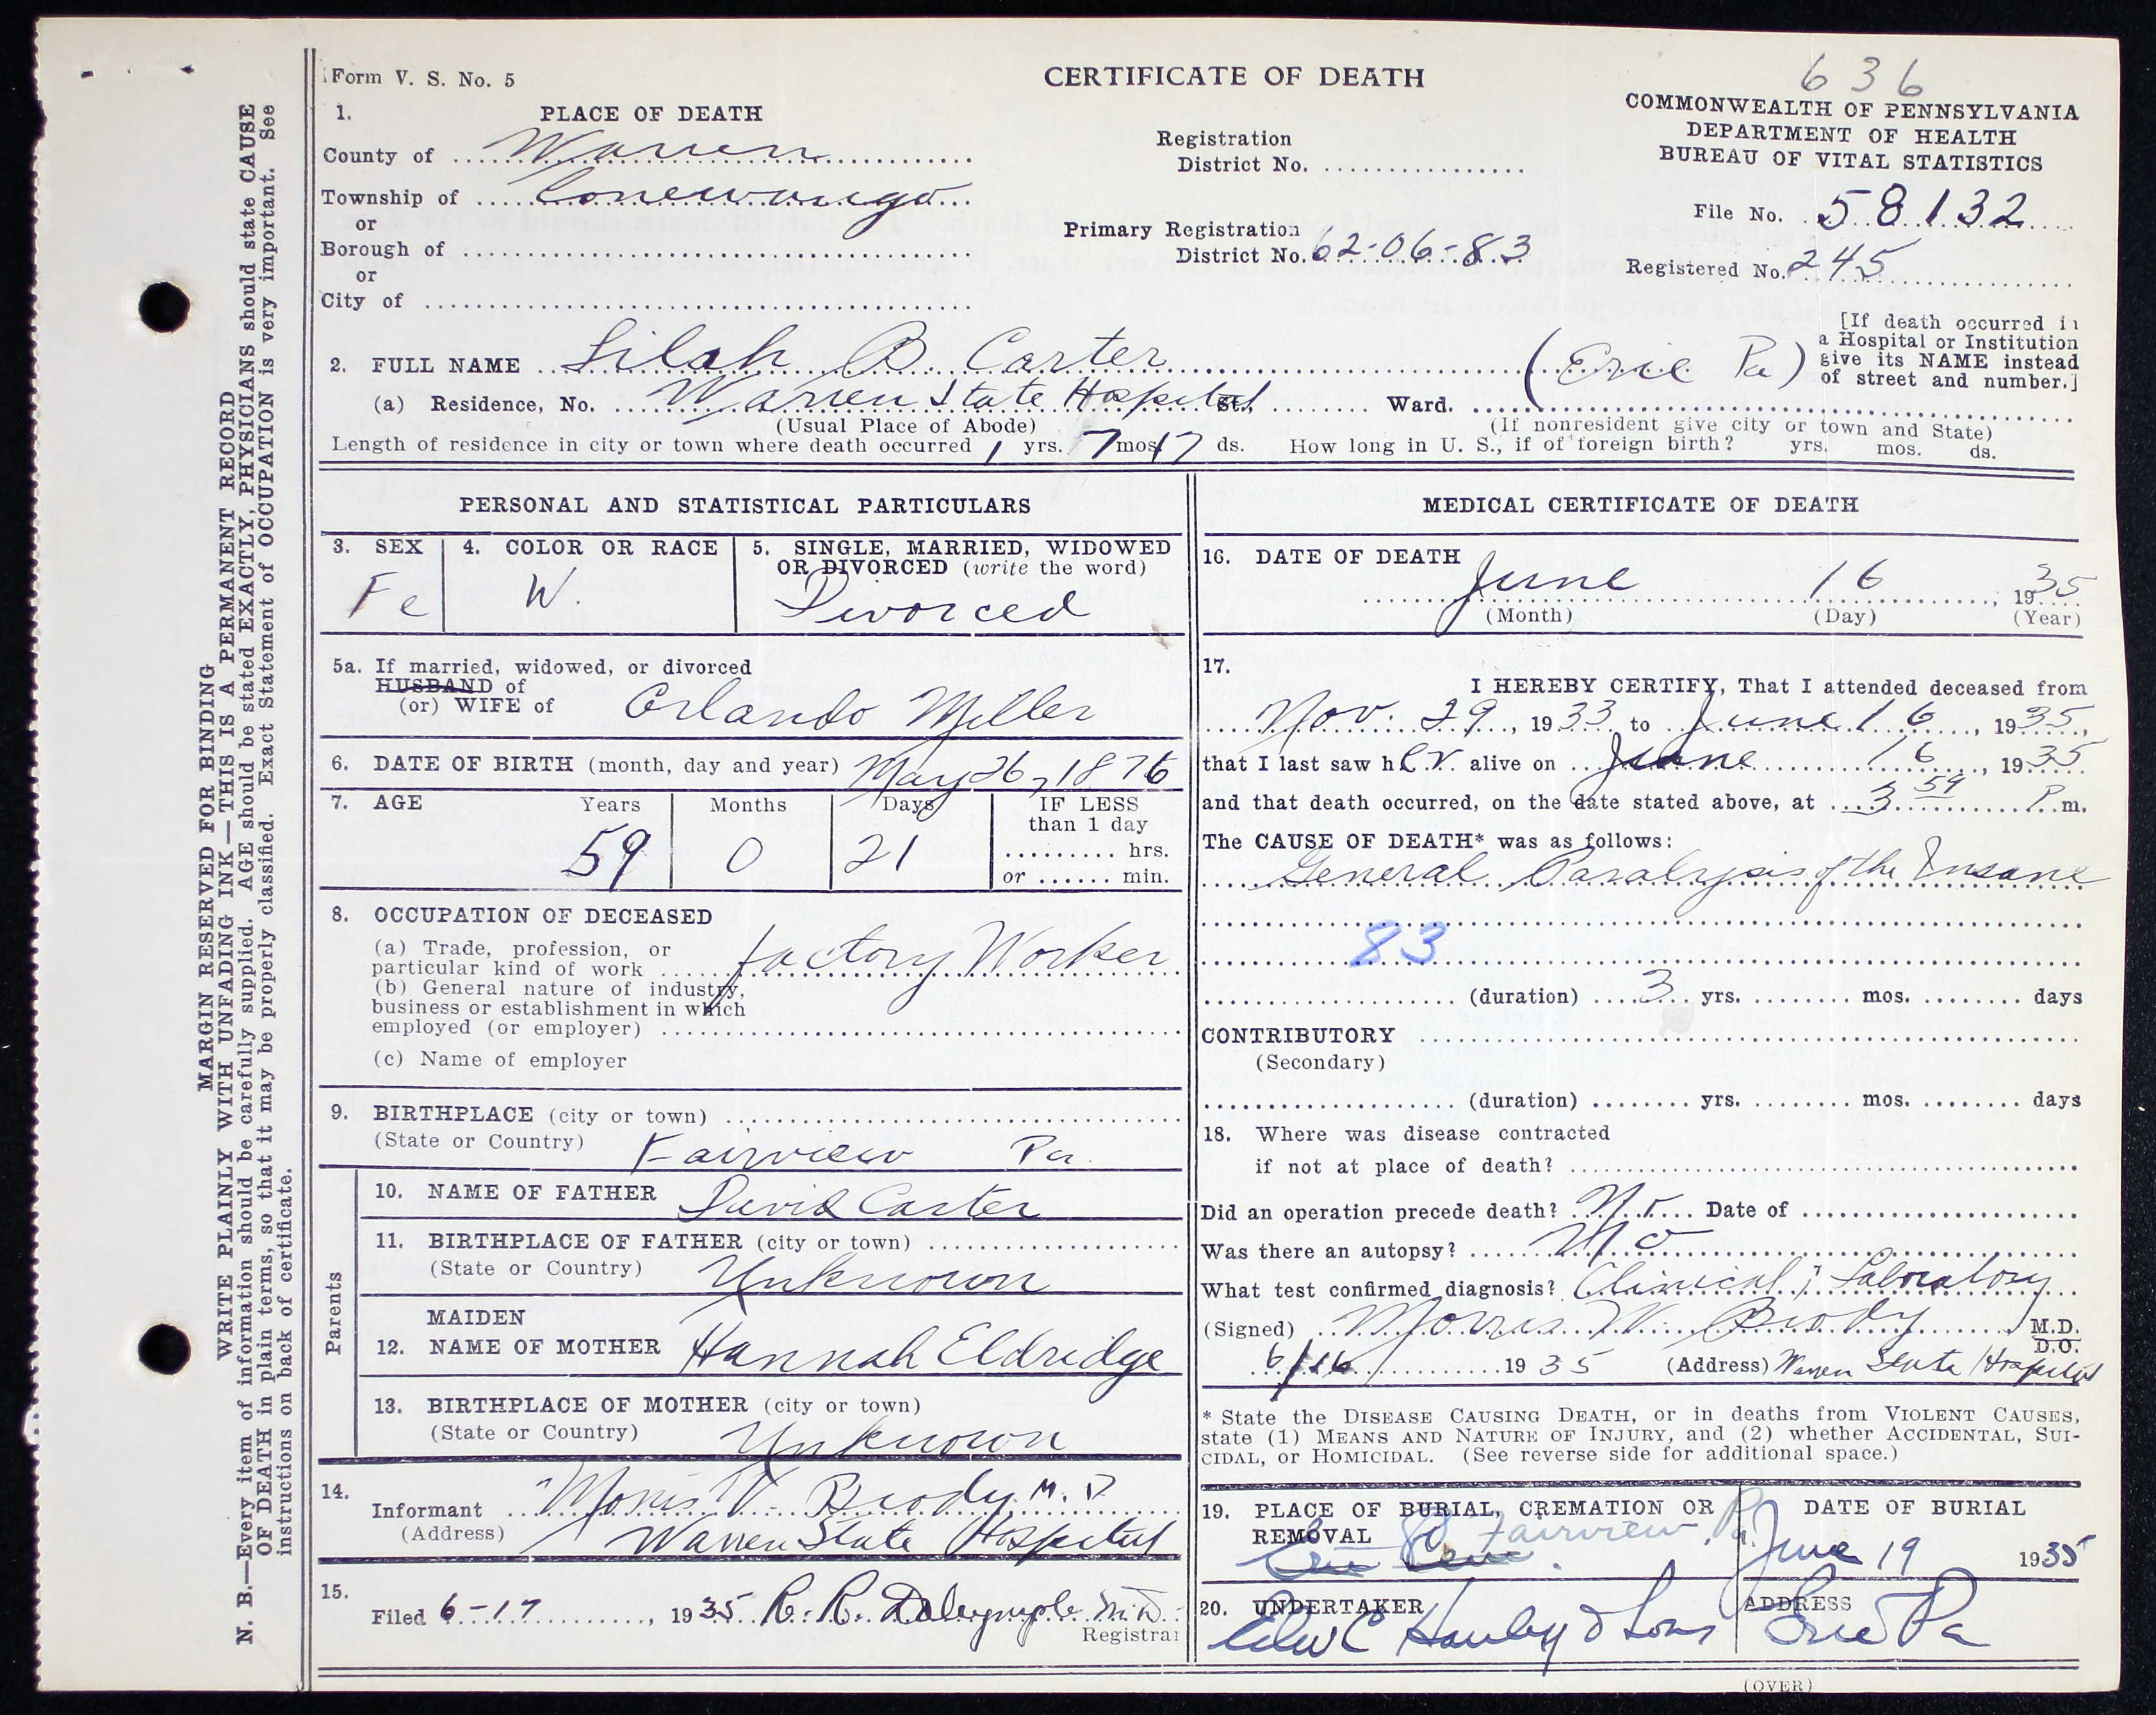 636
Form V. S. No. 5
CERTIFICATE OF DEATH
COMMONWEALTH OF PENNSYLVANIA
DEPARTMENT OF HEALTH
BUREAU OF VITAL STATISTICS
1. PLACE OF DEATH
County of Warren
Township of Conewango
or
Borough of
or
City of
Registration
District No.
Primary Registration
District No. 62-06-83
File No. 58132
Registered No. 245
2. FULL NAME Lilah B. Carter (Erie Pa)
[If death occurred in
a Hospital or Institution
give its NAME instead
of street and number.]
(a) Residence, No. Warren State Hospital St., Ward.
(Usual Place of Abode) (If nonresident give city or town and State)
Length of residence in city or town where death occurred 1 yrs. 7 mos. 17 ds. How long in U. S., if of foreign birth? yrs. mos. ds.
PERSONAL AND STATISTICAL PARTICULARS
3. SEX
Fe
4. COLOR OR RACE
W.
5. SINGLE, MARRIED, WIDOWED
OR DIVORCED (write the word)
Divorced
5a. If married, widowed, or divorced
HUSBAND of
(or) WIFE of Orlando Miller
6. DATE OF BIRTH (month, day and year) May 26, 1876
7. AGE Years Months Days IF LESS
than 1 day
59 0 21 hrs.
or min.
8. OCCUPATION OF DECEASED
(a) Trade, profession, or
particular kind of work factory Worker
(b) General nature of industry,
business or establishment in which
employed (or employer)
(c) Name of employer
9. BIRTHPLACE (city or town)
(State or Country) Fairview Pa.
Parents
10. NAME OF FATHER David Carter
11. BIRTHPLACE OF FATHER (city or town)
(State or Country) Unknown
MAIDEN
12. NAME OF MOTHER Hannah Eldredge
13. BIRTHPLACE OF MOTHER (city or town)
(State or Country) Unknown
14.
Informant Morris W. Brody M.D
(Address) Warren State Hospital
15.
Filed 6-17, 1935 R. R. Dalrymple M.D.
Registrar
MEDICAL CERTIFICATE OF DEATH
16. DATE OF DEATH
June 16, 1935
(Month) (Day) (Year)
17.
I HEREBY CERTIFY, That I attended deceased from
Nov. 29, 1933 to June 16, 1935,
that I last saw her alive on June 16, 1935
and that death occurred, on the date stated above, at 3 59 P. m.
The CAUSE OF DEATH* was as follows:
General Paralysis of the Insane
83
(duration) 3 yrs. mos. days
CONTRIBUTORY
(Secondary)
(duration) yrs. mos. days
18. Where was disease contracted
if not at place of death?
Did an operation precede death? No Date of
Was there an autopsy? No
What test confirmed diagnosis? Clinical; Laboratory
(Signed) Morris W. Brody M.D.
D.O.
6/16 1935 (Address) Warren State Hospital
* State the DISEASE CAUSING DEATH, or in deaths from VIOLENT CAUSES,
state (1) MEANS AND NATURE OF INJURY, and (2) whether ACCIDENTAL, SUI-
CIDAL, or HOMICIDAL. (See reverse side for additional space.)
19. PLACE OF BURIAL, CREMATION OR
REMOVAL Fairview, Pa.
DATE OF BURIAL
June 19 1935
20. UNDERTAKER
Hanley & Sons
ADDRESS
Erie Pa
(OVER)
MARGIN RESERVED FOR BINDING
WRITE PLAINLY WITH UNFADING INK—THIS IS A PERMANENT RECORD
N. B.—Every item of information should be carefully supplied. AGE should be stated EXACTLY, PHYSICIANS should state CAUSE
OF DEATH in plain terms, so that it may be properly classified. Exact Statement of OCCUPATION is very important. See
instructions on back of certificate.